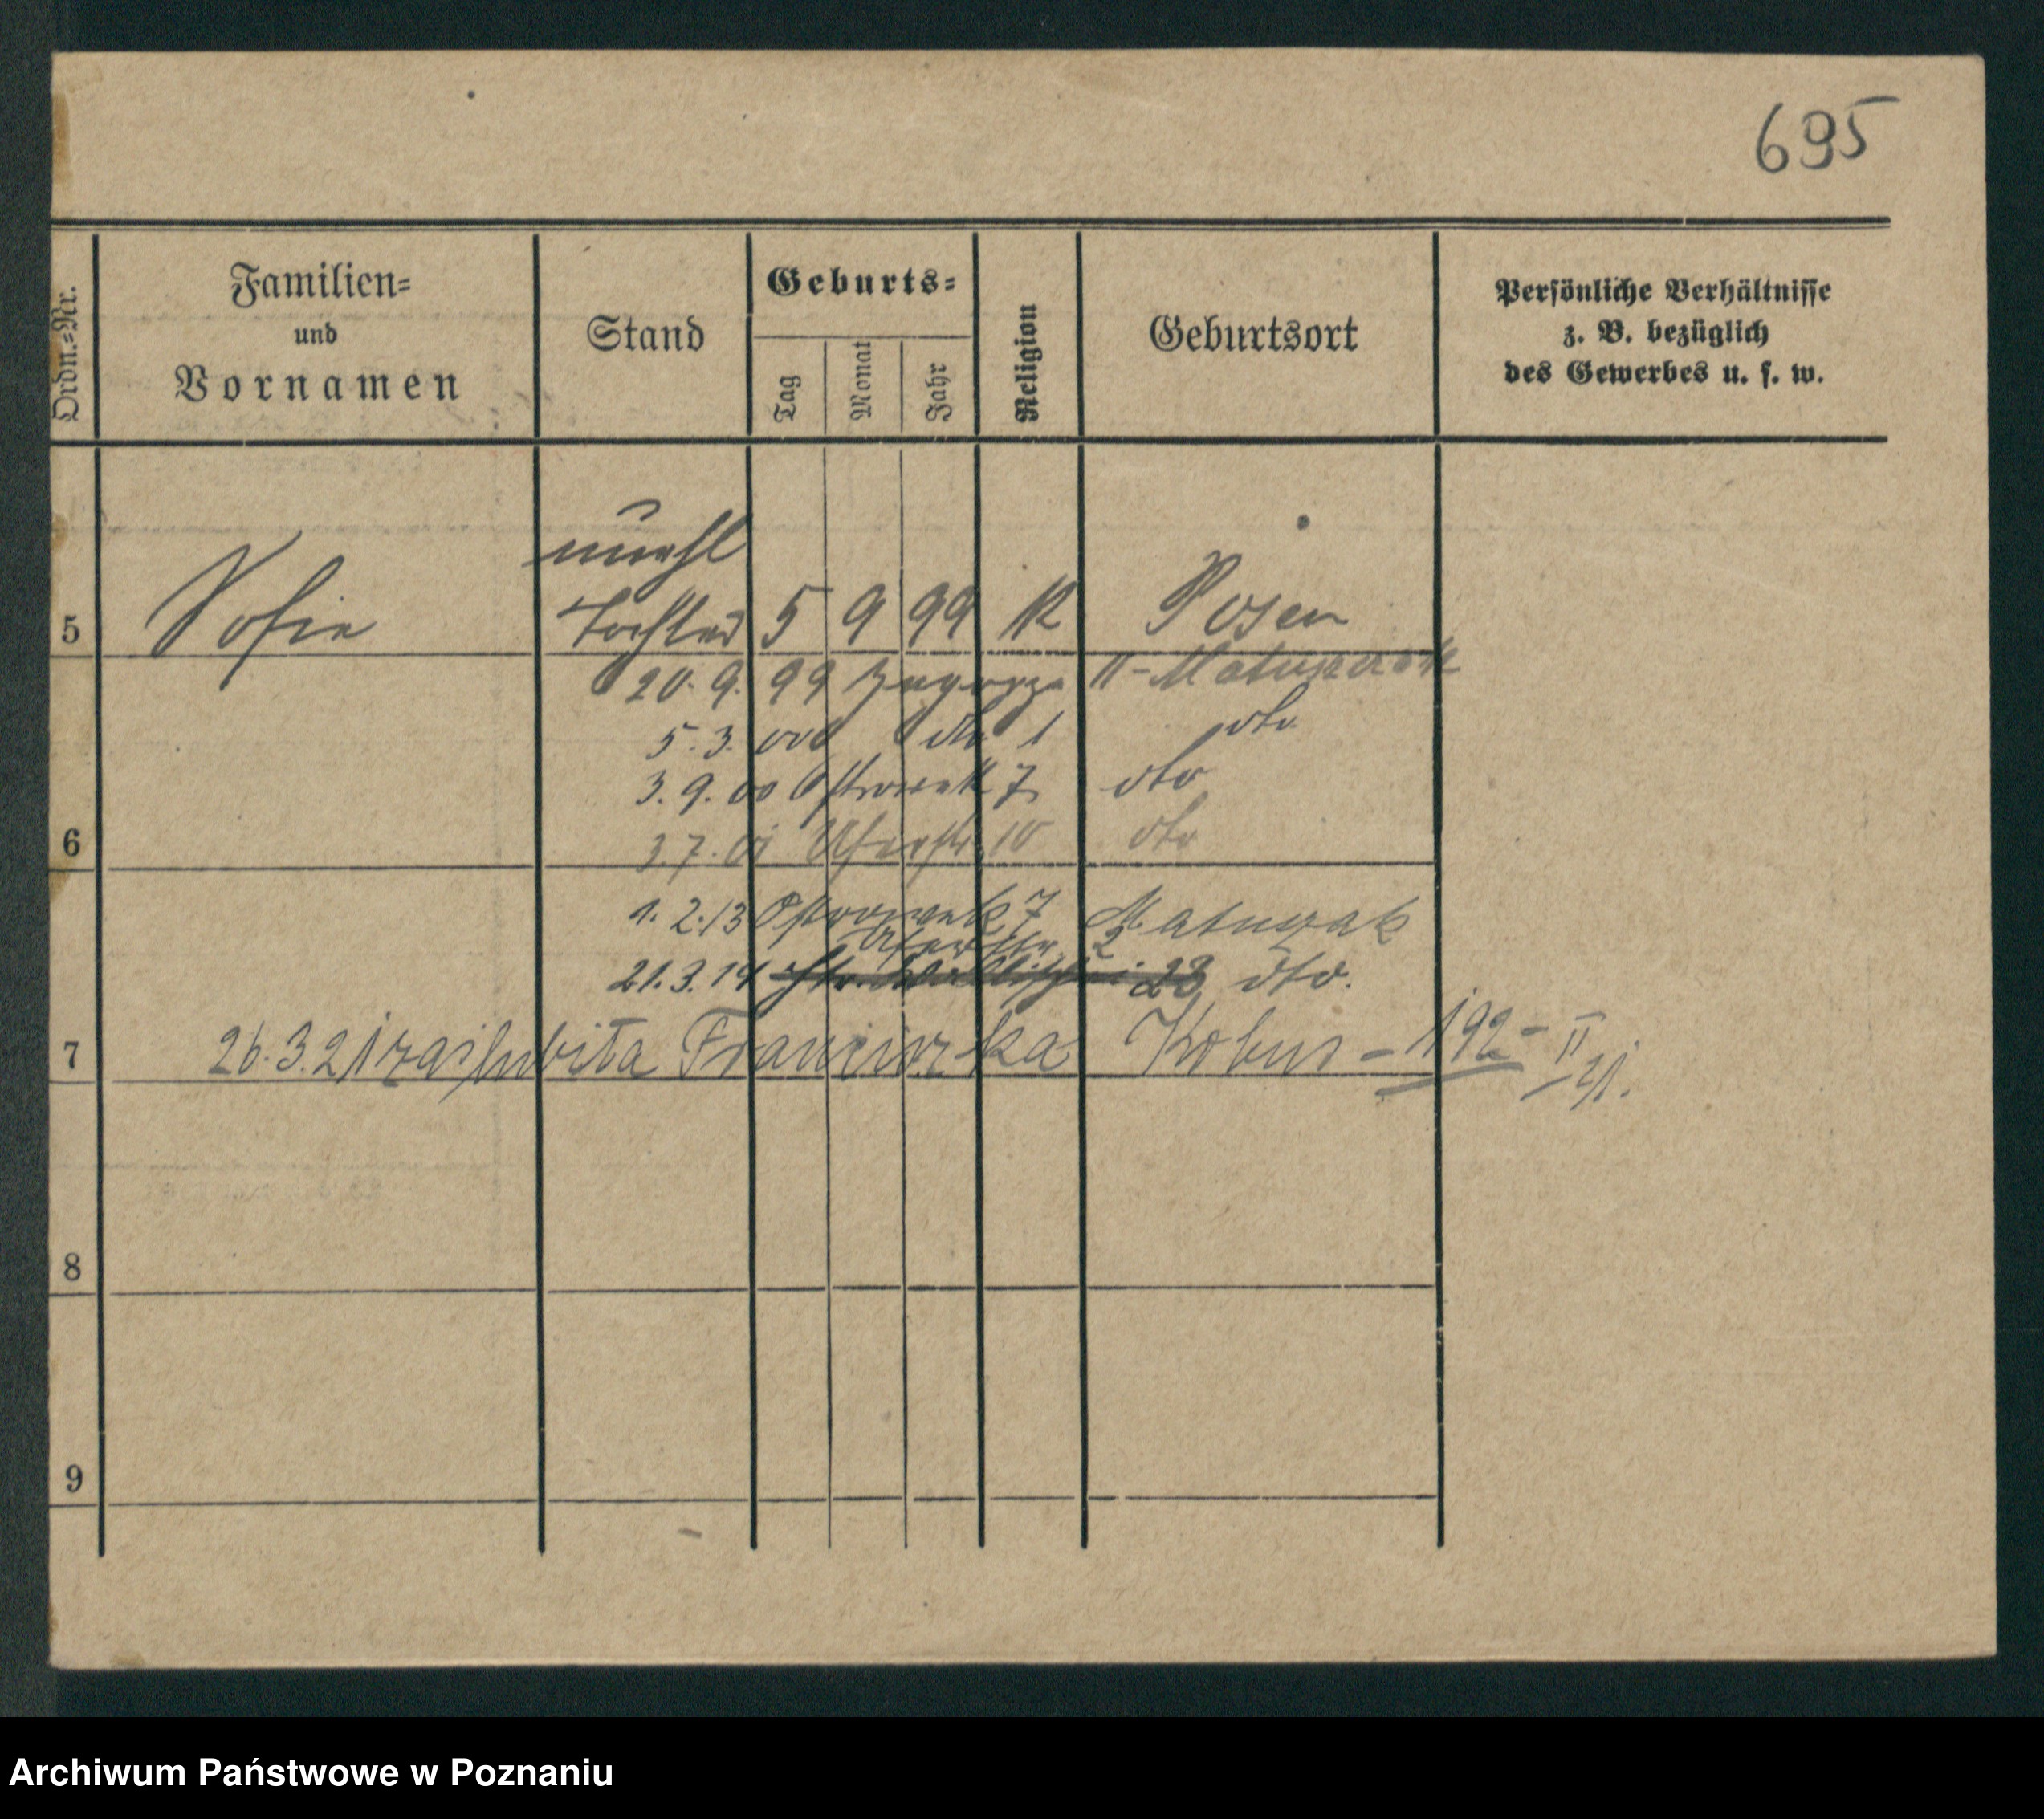 695
Ordn.=Nr.
Familien=
und
Vornamen
Stand
Geburts=
Tag
Monat
Jahr
Religion
Geburtsort
Persönliche Verhältnisse
z. B. bezüglich
des Gewerbes u. s. w.
unehl
5 Sofie Tochter 5 9 99 K Posen
20. 9. 99 Zagorze 11 - Matuszak
5. 3. 00 dto 1 dto
3. 9. 00 Ostrowek 7 dto
6
3. 7. 01 Uferstr 10 dto
1. 2. 13 Ostrowek 7 Matuszak
Uferstr. 2
21. 3. 14 23 dto.
7 26.3.21 zaślubiła Franciszka Kobus - 192 - II
21.
8
9
Archiwum Państwowe w Poznaniu